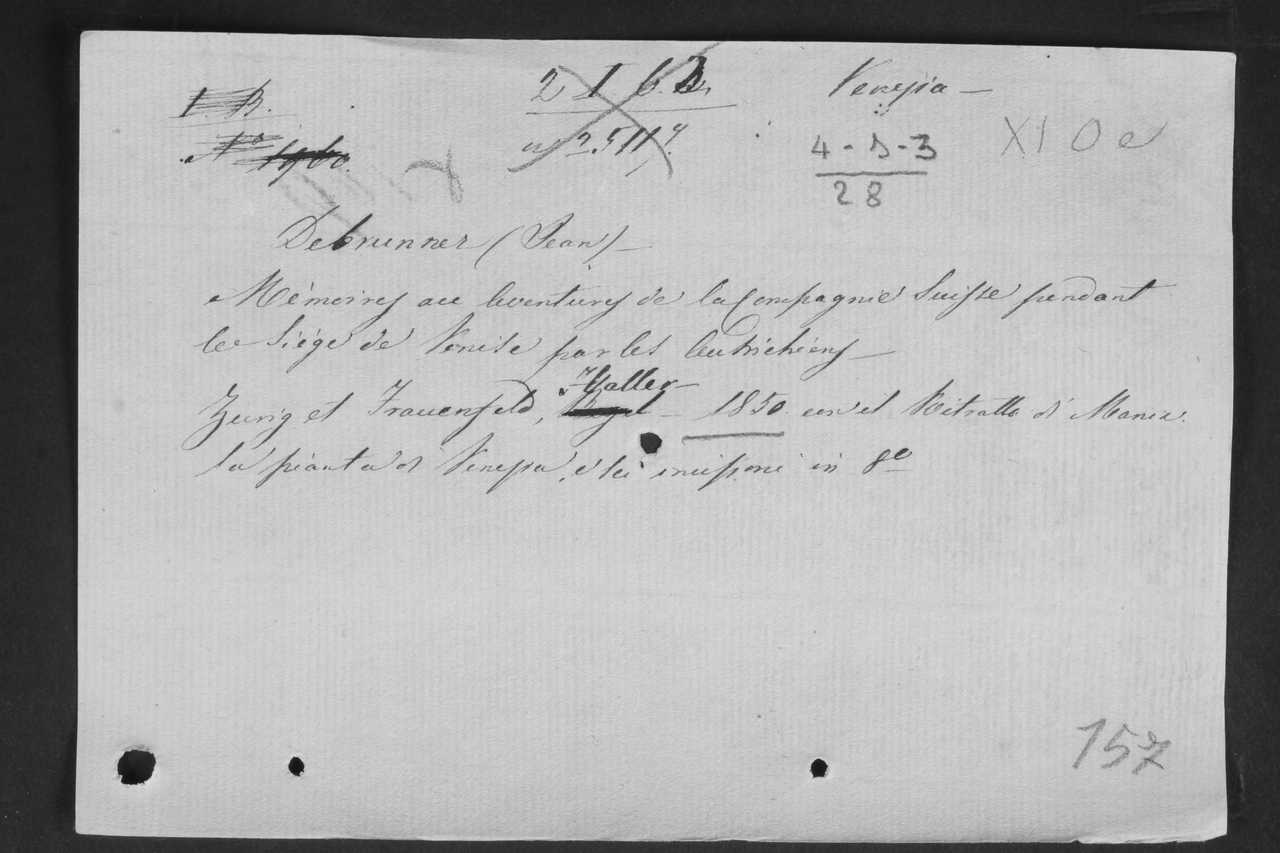 I. B.
2 I 6. D.
Venezia —
N.º 1960.
n.º 2511 9.
4 - D - 3
28
XI O e
Debrunner (Jean) —
Mémoires au Aventures de la Compagnie Suisse pendant
le Siége de Venise par les Autrichiens —
Haller
Zurig et Frauenfeld, 1850 con il Ritratto di Manin
la pianta di Venezia, e lei incisione in 8º
157